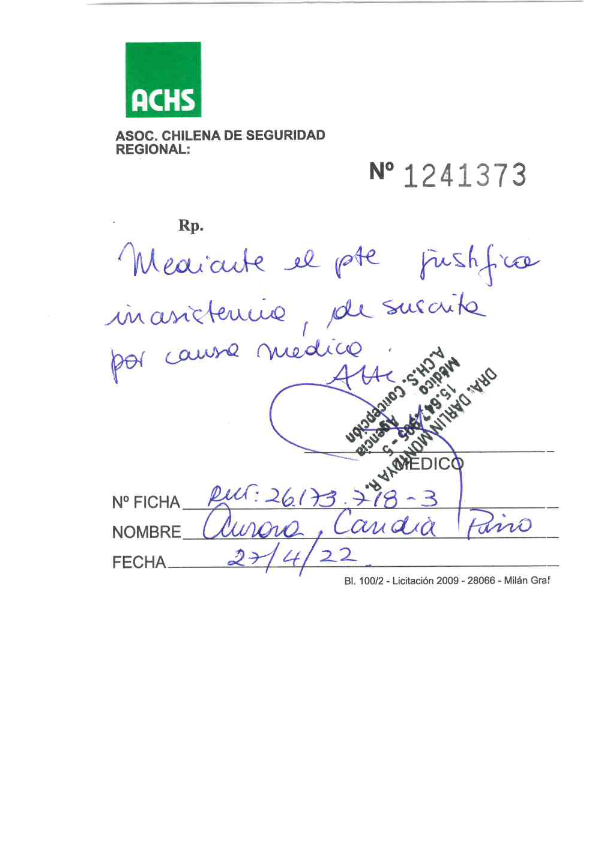 ACHS
ASOC. CHILENA DE SEGURIDAD
REGIONAL:
Nº 1241373
Rp.
Mediante el pte justifico
inasistencia, de suscrita
por causa medica.
Atte.
DRA. DARLIN MONTOYA R.
15.647.905 - 5
Médico Agencia
A.CH.S. Concepción
MEDICO
Nº FICHA RUT: 26.173.718-3
NOMBRE Aurora, Candia Pino
FECHA 27/4/22
Bl. 100/2 - Licitación 2009 - 28066 - Milán Graf